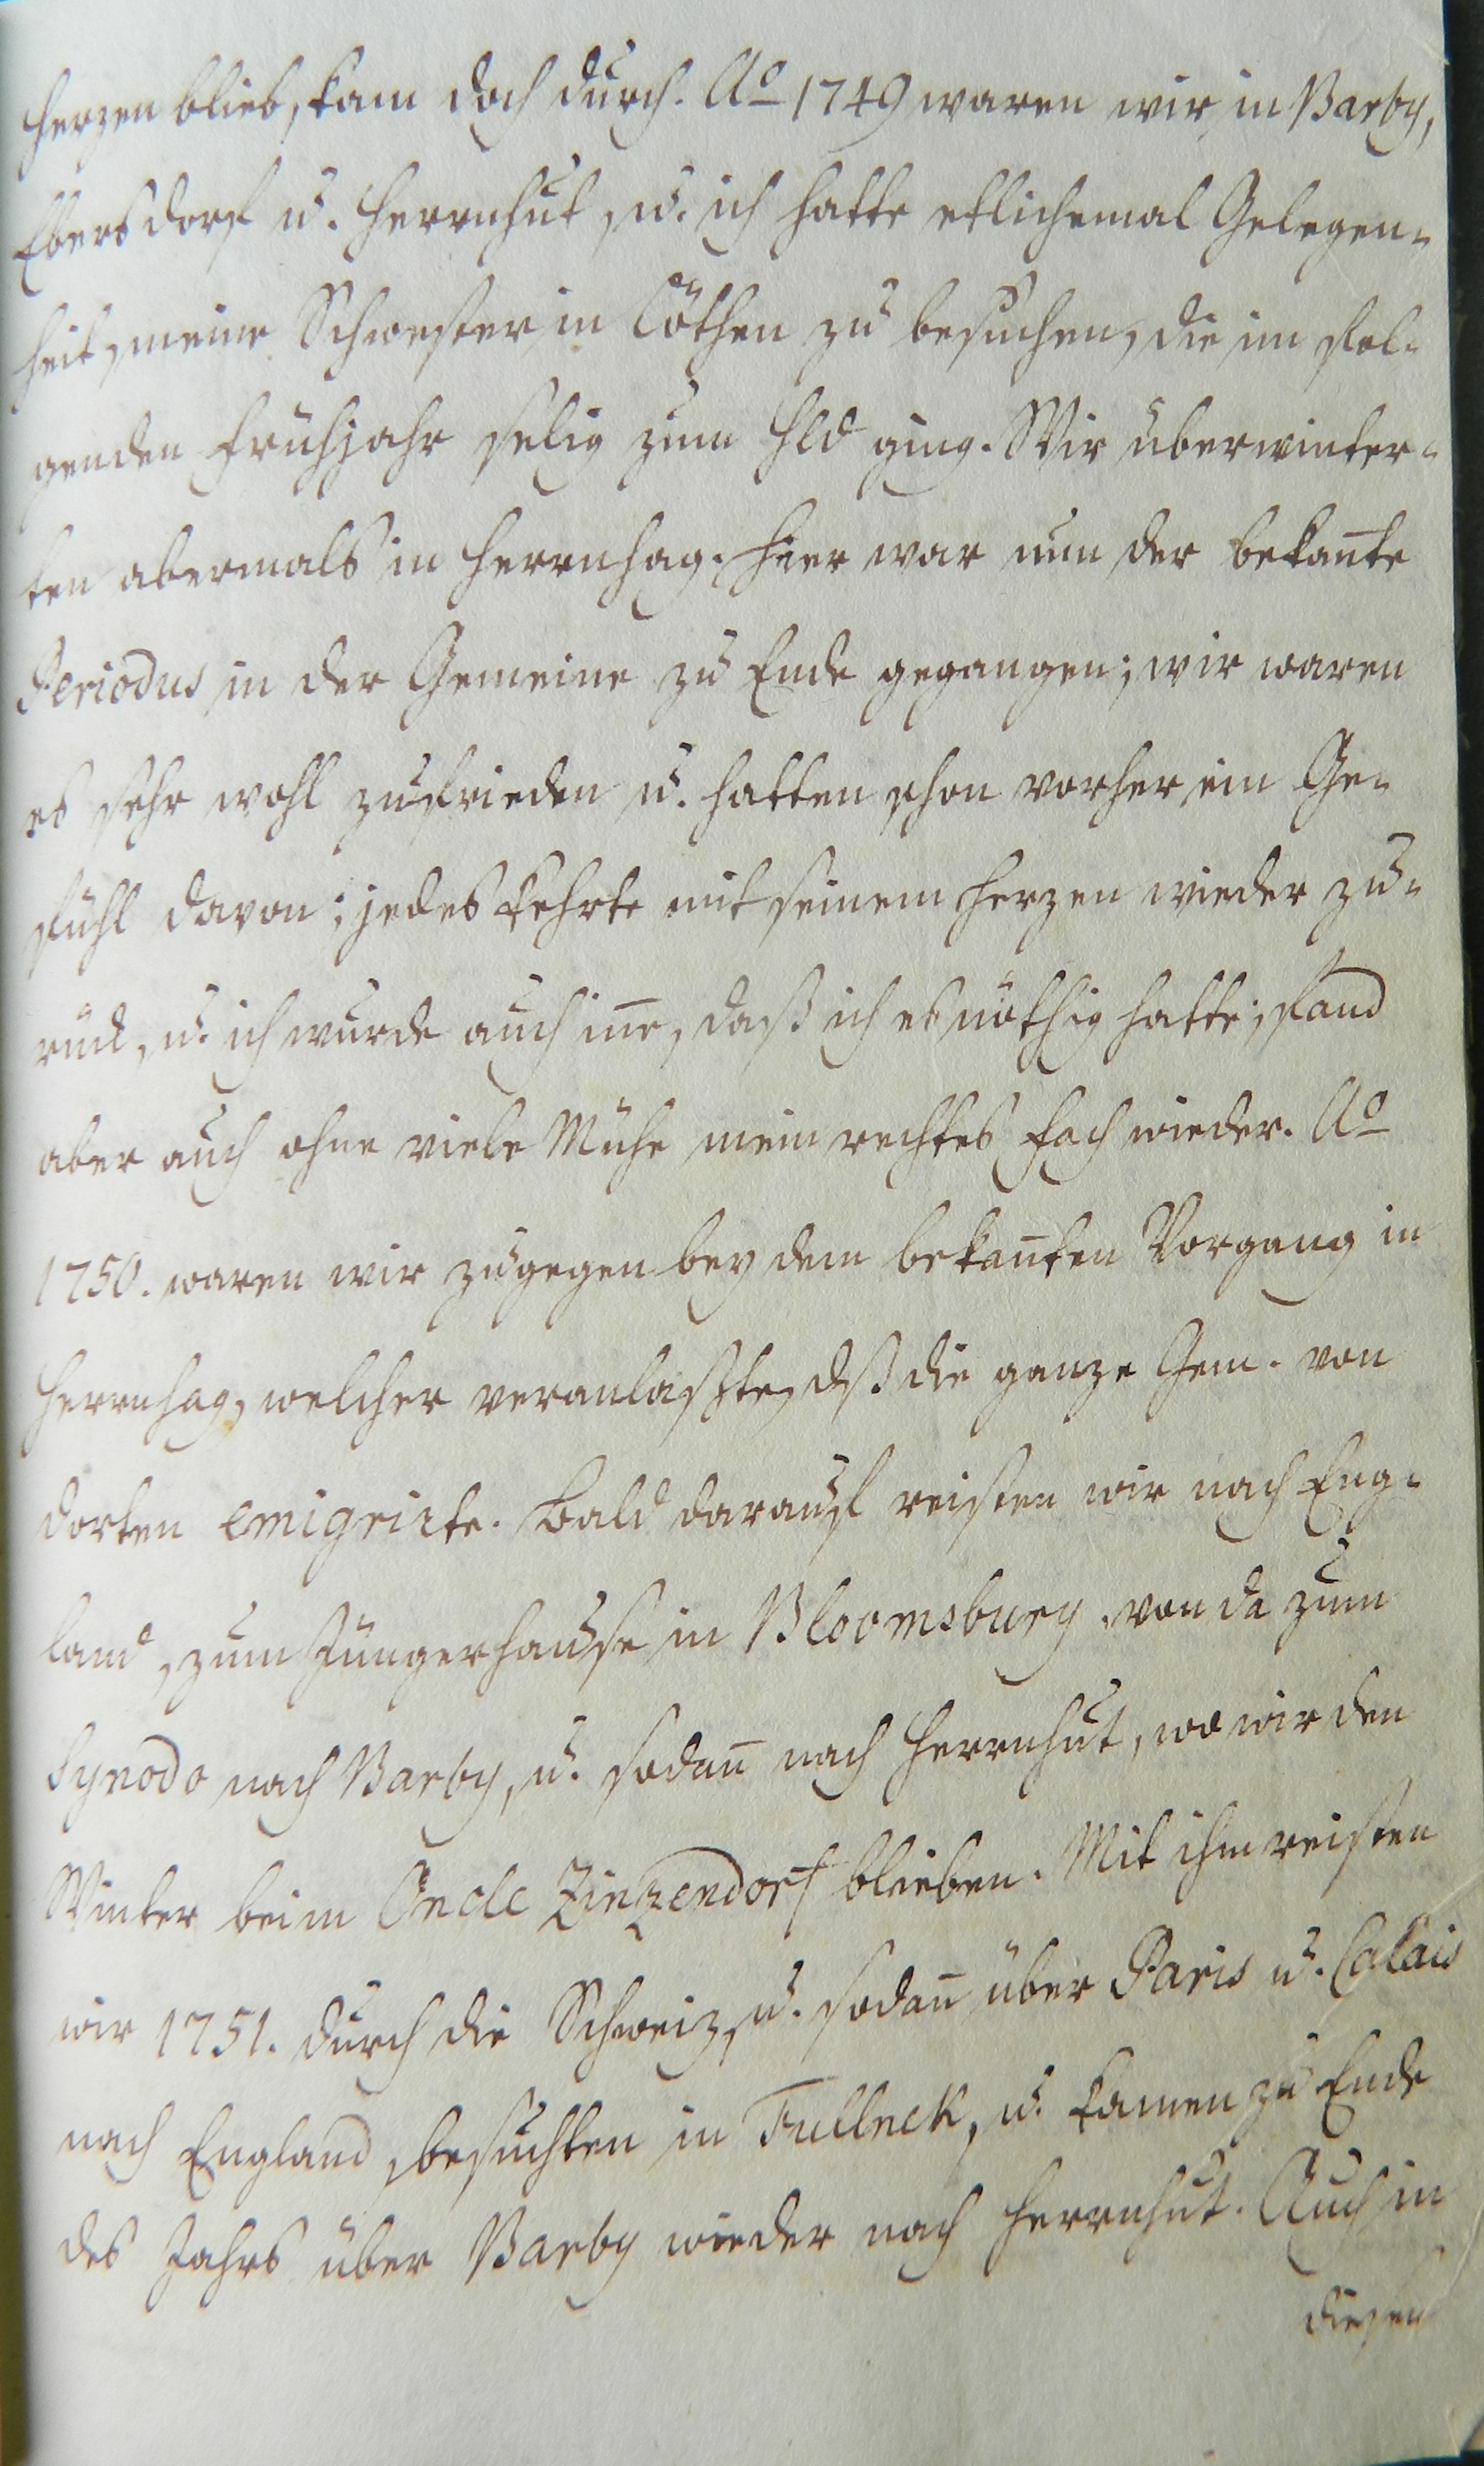 Herzen blieb, kam doch durch. Ao 1749 waren wir in Barby,
Ebersdorf u. Herrnhut, u. ich hatte etlichemal Gelegen-
heit, meine Schwester in Cöthen zu besuchen, die im fol-
genden Frühjahr selig zum Hld ging. Wir überwinter-
ten abermals in Herrnhag. Hier war nun der bekan̄te
Periodus in der Gemeine zu Ende gegangen; wir waren
es sehr wohl zufrieden u. hatten schon vorher ein Ge-
fühl davon; jedes kehrte mit seinem Herzen wieder zu-
rück, u. ich wurde auch in̄e, daß ich es nöthig hatte; fand
aber auch ohne viele Mühe mein rechtes Fach wieder. Ao
1750. waren wir zugegen bey dem bekan̄ten Vorgang in
Herrnhag, welcher veranlaßte, dß die ganze Gem. von
dorten emigrirte. Bald darauf reisten wir nach Eng-
land, zum Jüngerhause in Bloomsbury. von da zum
Synodo nach Barby, u. sodan̄ nach Herrnhut, wo wir den
Winter beim Oncle Zinzendorf blieben. Mit ihm reisten
wir 1751. durch die Schweiz, u. sodan̄ über Paris u. Calais
nach England, besuchten in Fulneck, u. kamen zu Ende
des Jahrs über Barby wieder nach Herrnhut. Auch in
diesen